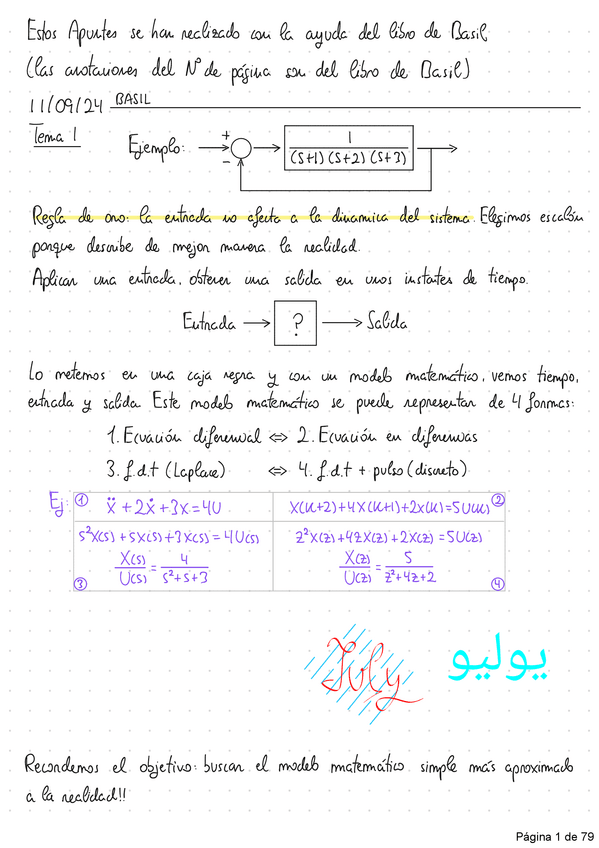 Estos Apuntes se han realizado con la ayuda del libro de Basil
(las anotaciones del Nº de página son del libro de Basil)
11/09/24 BASIL
Tema 1
Ejemplo: + - 1 / (S+1) (S+2) (S+3)
Regla de oro: la entrada no afecta a la dinamica del sistema. Elegimos escalón
porque describe de mejor manera la realidad.
Aplicar una entrada, obtener una salida en unos instantes de tiempo.
Entrada → ? → Salida
Lo metemos en una caja negra y con un modelo matemático, vemos tiempo,
entrada y salida. Este modelo matemático se puede representar de 4 formas:
1. Ecuación diferencial ⇔ 2. Ecuación en diferencias
3. f.d.t (Laplace) ⇔ 4. f.d.t + pulso (discreto)
Ej: ① ẍ + 2ẋ + 3x = 4U
X(K+2)+4X(K+1)+2X(K)=5U(K) ②
S²X(S) + SX(S) + 3X(S) = 4U(S)
Z²X(Z)+4ZX(Z)+2X(Z)=5U(Z)
③ X(S)/U(S) = 4/(S²+S+3)
X(Z)/U(Z) = 5/(Z²+4Z+2) ④
July يوليو
Recordemos el objetivo: buscar el modelo matemático simple más aproximado
a la realidad!!
Página 1 de 79